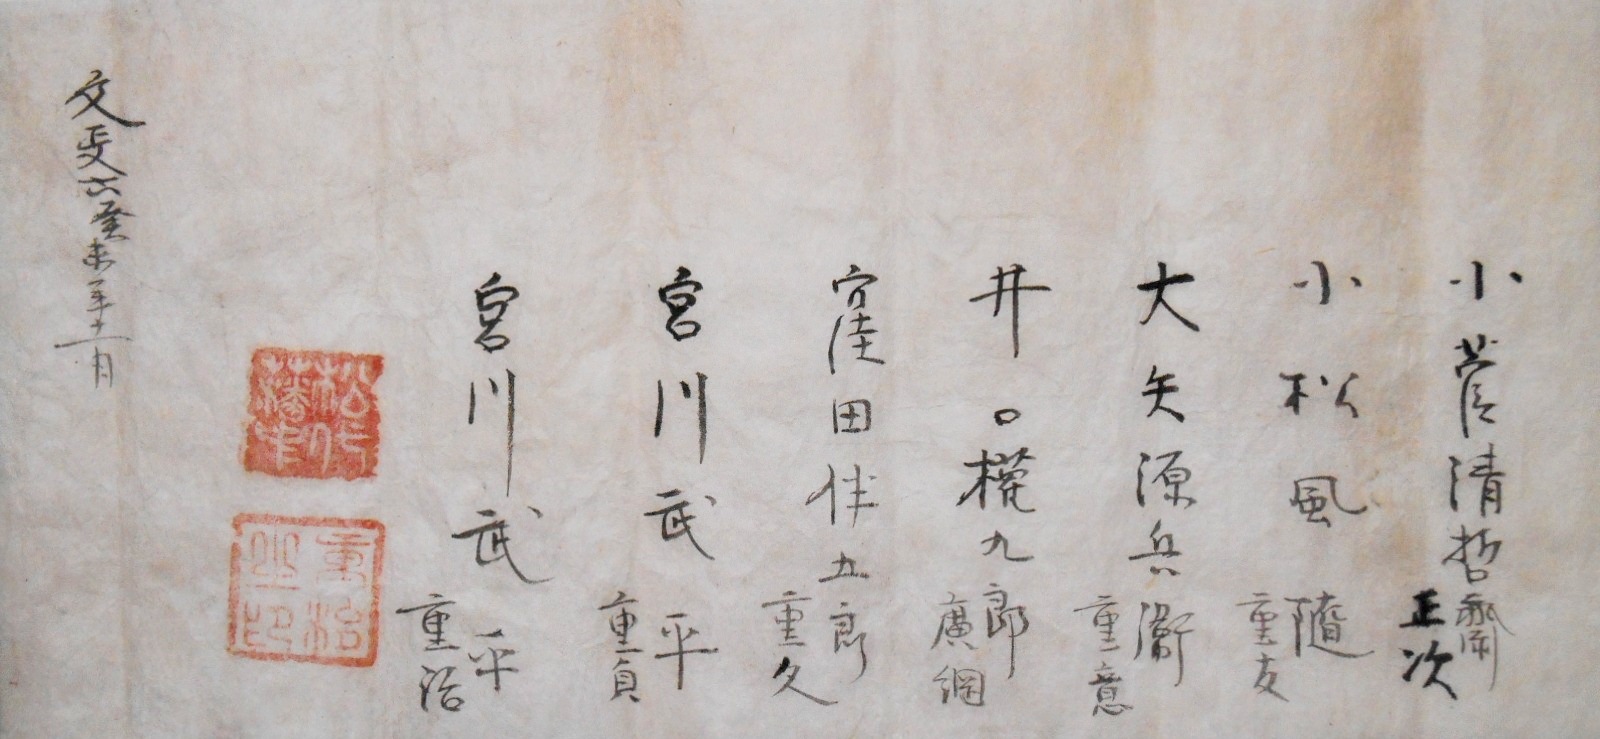 小菅清哲齋
正次
小松風隨
重友
大矢源兵衞
重意
井口權九郎
廣綱
窪田伴五郎
重久
宮川武平
重貞
宮川武平
重治
重治之印
文政六癸未年十一月